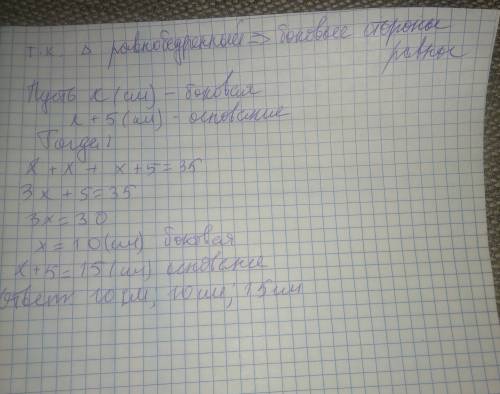 т.к Δ равнобедренный => боковые стороны
равны
Пусть x (см) - боковая
x + 5 (см) - основание
Тогда:
x + x + x + 5 = 35
3x + 5 = 35
3x = 30
x = 10 (см) боковая
x + 5 = 15 (см) основание
Ответ 10 см; 10 см; 15 см